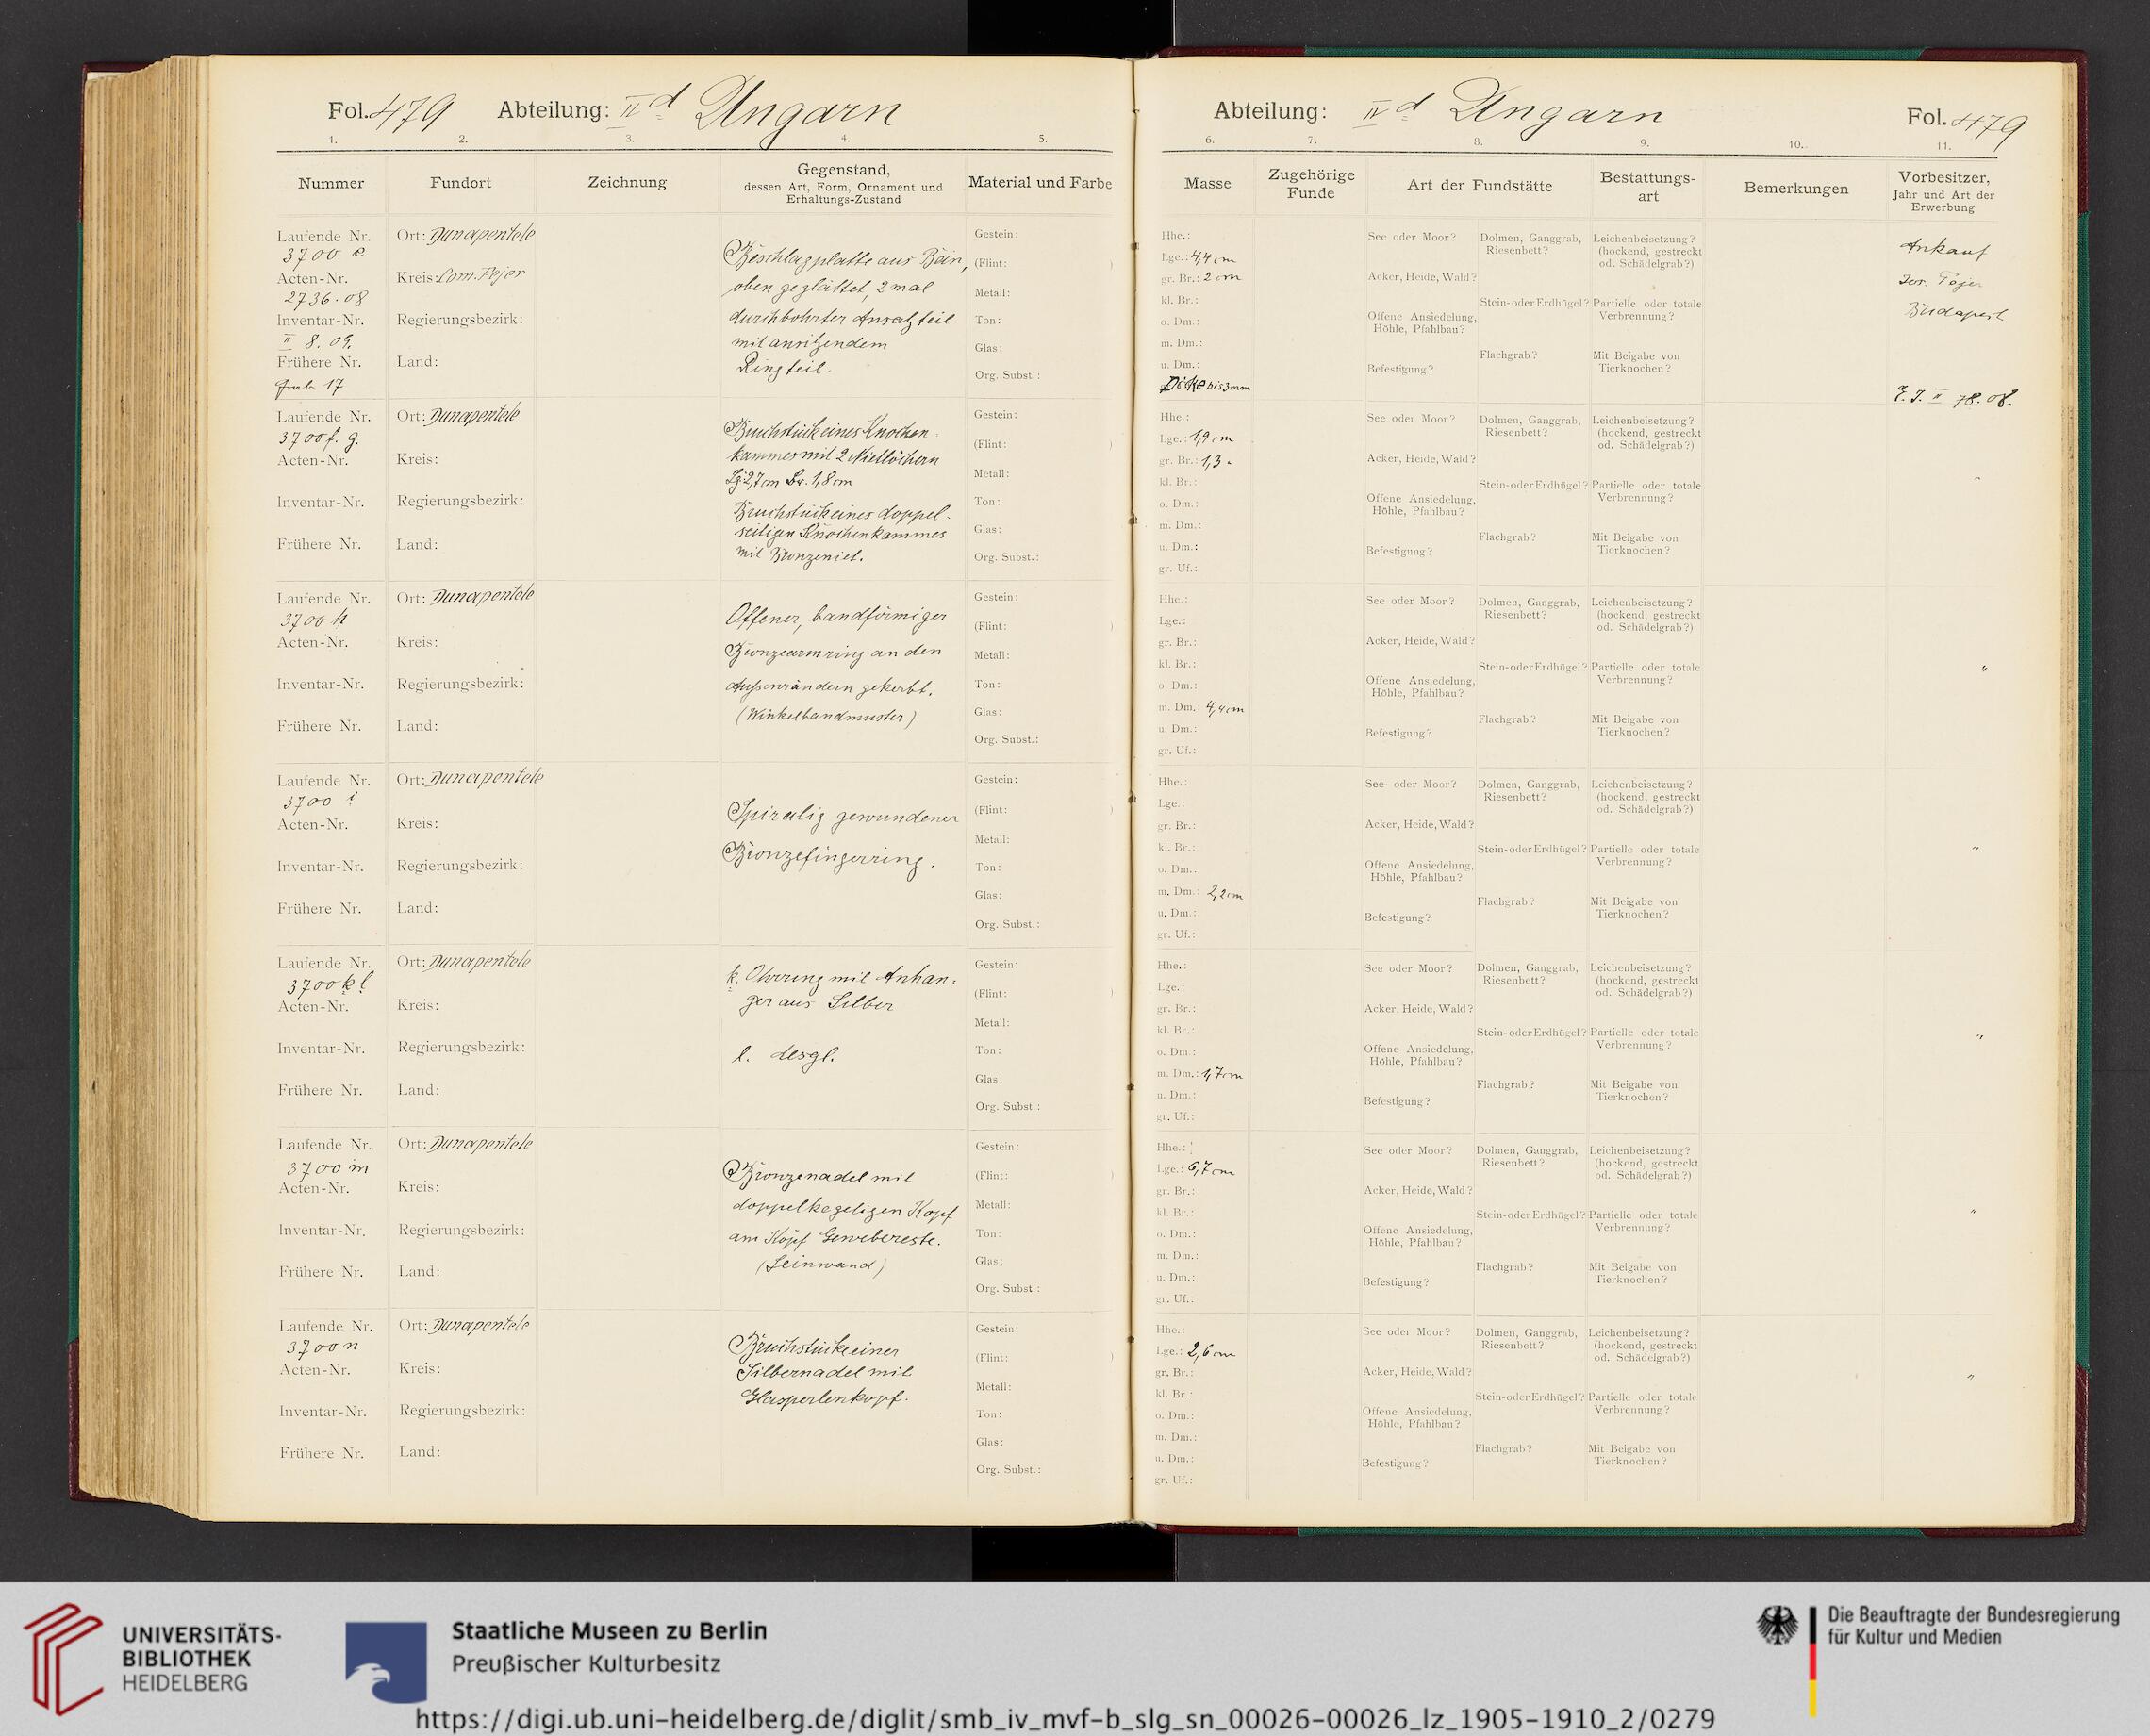 Fol. 479 Abteilung: IV d Ungarn
1. 2. 3. 4. 5.
Nummer Fundort Zeichnung Gegenstand, dessen Art, Form, Ornament und Erhaltungs-Zustand Material und Farbe
Laufende Nr. 3700 e
Acten-Nr. 2736.08
Inventar-Nr. II 8.09.
Frühere Nr. Grab 17
Ort: Dunapentele
Kreis: Com. Fejer
Regierungsbezirk:
Land:
Beschlagplatte aus Bein,
oben geglättet, 2 mal
durchbohrter Ansatzteil
mit ansitzendem
Ringteil.
Gestein:
(Flint: )
Metall:
Ton:
Glas:
Org. Subst.:
Laufende Nr. 3700 f. g.
Acten-Nr.
Inventar-Nr.
Frühere Nr.
Ort: Dunapentele
Kreis:
Regierungsbezirk:
Land:
Bruchstück eines Knochen
kammes mit 2 Nietlöchern
Lg. 2,7cm Br. 1,8cm
Bruchstück eines doppel-
seitigen Knochenkammes
mit Bronzeniet.
Gestein:
(Flint: )
Metall:
Ton:
Glas:
Org. Subst.:
Laufende Nr. 3700 h
Acten-Nr.
Inventar-Nr.
Frühere Nr.
Ort: Dunapentele
Kreis:
Regierungsbezirk:
Land:
Offener, bandförmiger
Bronzearmring an den
Aussenrändern gekerbt.
(Winkelbandmuster)
Gestein:
(Flint: )
Metall:
Ton:
Glas:
Org. Subst.:
Laufende Nr. 3700 i
Acten-Nr.
Inventar-Nr.
Frühere Nr.
Ort: Dunapentele
Kreis:
Regierungsbezirk:
Land:
Spiralig gewundener
Bronzefingerring.
Gestein:
(Flint: )
Metall:
Ton:
Glas:
Org. Subst.:
Laufende Nr. 3700 k l
Acten-Nr.
Inventar-Nr.
Frühere Nr.
Ort: Dunapentele
Kreis:
Regierungsbezirk:
Land:
k. Ohrring mit Anhän-
ger aus Silber
l. desgl.
Gestein:
(Flint: )
Metall:
Ton:
Glas:
Org. Subst.:
Laufende Nr. 3700 m
Acten-Nr.
Inventar-Nr.
Frühere Nr.
Ort: Dunapentele
Kreis:
Regierungsbezirk:
Land:
Bronzenadel mit
doppelkegeligen Kopf
am Kopf Gewebereste.
(Leinwand)
Gestein:
(Flint: )
Metall:
Ton:
Glas:
Org. Subst.:
Laufende Nr. 3700 n
Acten-Nr.
Inventar-Nr.
Frühere Nr.
Ort: Dunapentele
Kreis:
Regierungsbezirk:
Land:
Bruchstück einer
Silbernadel mit
Glasperlenkopf.
Gestein:
(Flint: )
Metall:
Ton:
Glas:
Org. Subst.:
Abteilung: IV d Ungarn Fol. 479
6. 7. 8. 9. 10. 11.
Masse Zugehörige Funde Art der Fundstätte Bestattungs-art Bemerkungen Vorbesitzer, Jahr und Art der Erwerbung
Hhe.:
Lge.: 4,4 cm
gr. Br.: 2 cm
kl. Br.:
o. Dm.:
m. Dm.:
u. Dm.:
Dicke bis 3 mm
See oder Moor?
Acker, Heide, Wald?
Offene Ansiedelung, Höhle, Pfahlbau?
Befestigung?
Dolmen, Ganggrab, Riesenbett?
Stein- oder Erdhügel?
Flachgrab?
Leichenbeisetzung? (hockend, gestreckt od. Schädelgrab?)
Partielle oder totale Verbrennung?
Mit Beigabe von Tierknochen?
Ankauf
Budapest
E. J. II 78.08.
Hhe.:
Lge.: 1,9 cm
gr. Br.: 1,3 "
kl. Br.:
o. Dm.:
m. Dm.:
u. Dm.:
gr. Uf.:
See oder Moor?
Acker, Heide, Wald?
Offene Ansiedelung, Höhle, Pfahlbau?
Befestigung?
Dolmen, Ganggrab, Riesenbett?
Stein- oder Erdhügel?
Flachgrab?
Leichenbeisetzung? (hockend, gestreckt od. Schädelgrab?)
Partielle oder totale Verbrennung?
Mit Beigabe von Tierknochen?
"
Hhe.:
Lge.:
gr. Br.:
kl. Br.:
o. Dm.:
m. Dm.: 4,4 cm
u. Dm.:
gr. Uf.:
See oder Moor?
Acker, Heide, Wald?
Offene Ansiedelung, Höhle, Pfahlbau?
Befestigung?
Dolmen, Ganggrab, Riesenbett?
Stein- oder Erdhügel?
Flachgrab?
Leichenbeisetzung? (hockend, gestreckt od. Schädelgrab?)
Partielle oder totale Verbrennung?
Mit Beigabe von Tierknochen?
"
Hhe.:
Lge.:
gr. Br.:
kl. Br.:
o. Dm.:
m. Dm.: 2,2 cm
u. Dm.:
gr. Uf.:
See- oder Moor?
Acker, Heide, Wald?
Offene Ansiedelung, Höhle, Pfahlbau?
Befestigung?
Dolmen, Ganggrab, Riesenbett?
Stein- oder Erdhügel?
Flachgrab?
Leichenbeisetzung? (hockend, gestreckt od. Schädelgrab?)
Partielle oder totale Verbrennung?
Mit Beigabe von Tierknochen?
"
Hhe.:
Lge.:
gr. Br.:
kl. Br.:
o. Dm.:
m. Dm.: 1,7 cm
u. Dm.:
gr. Uf.:
See oder Moor?
Acker, Heide, Wald?
Offene Ansiedelung, Höhle, Pfahlbau?
Befestigung?
Dolmen, Ganggrab, Riesenbett?
Stein- oder Erdhügel?
Flachgrab?
Leichenbeisetzung? (hockend, gestreckt od. Schädelgrab?)
Partielle oder totale Verbrennung?
Mit Beigabe von Tierknochen?
"
Hhe.:
Lge.: 6,7 cm
gr. Br.:
kl. Br.:
o. Dm.:
m. Dm.:
u. Dm.:
gr. Uf.:
See oder Moor?
Acker, Heide, Wald?
Offene Ansiedelung, Höhle, Pfahlbau?
Befestigung?
Dolmen, Ganggrab, Riesenbett?
Stein- oder Erdhügel?
Flachgrab?
Leichenbeisetzung? (hockend, gestreckt od. Schädelgrab?)
Partielle oder totale Verbrennung?
Mit Beigabe von Tierknochen?
"
Hhe.:
Lge.: 2,6 cm
gr. Br.:
kl. Br.:
o. Dm.:
m. Dm.:
u. Dm.:
gr. Uf.:
See oder Moor?
Acker, Heide, Wald?
Offene Ansiedelung, Höhle, Pfahlbau?
Befestigung?
Dolmen, Ganggrab, Riesenbett?
Stein- oder Erdhügel?
Flachgrab?
Leichenbeisetzung? (hockend, gestreckt od. Schädelgrab?)
Partielle oder totale Verbrennung?
Mit Beigabe von Tierknochen?
"
UNIVERSITÄTS-
BIBLIOTHEK
HEIDELBERG
Staatliche Museen zu Berlin
Preußischer Kulturbesitz
Die Beauftragte der Bundesregierung
für Kultur und Medien
https://digi.ub.uni-heidelberg.de/diglit/smb_iv_mvf-b_slg_sn_00026-00026_lz_1905-1910_2/0279